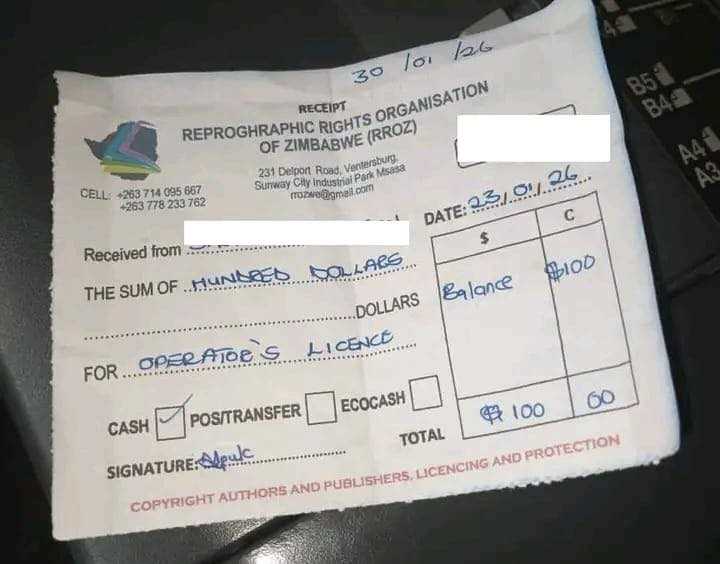 30/01/26
RECEIPT
REPROGHRAPHIC RIGHTS ORGANISATION
OF ZIMBABWE (RROZ)
231 Delport Road, Ventersburg,
Sunway City Industrial Park Msasa
rrozwe@gmail.com
CELL: +263 714 095 667
+263 778 233 762
DATE: 23/01/26
Received from
THE SUM OF HUNDRED DOLLARS
DOLLARS
FOR OPERATOR'S LICENCE
$ C
Balance $100
CASH ✓ POS/TRANSFER ECOCASH
TOTAL $100 00
SIGNATURE:
COPYRIGHT AUTHORS AND PUBLISHERS, LICENCING AND PROTECTION
B5
B4
A4
A3